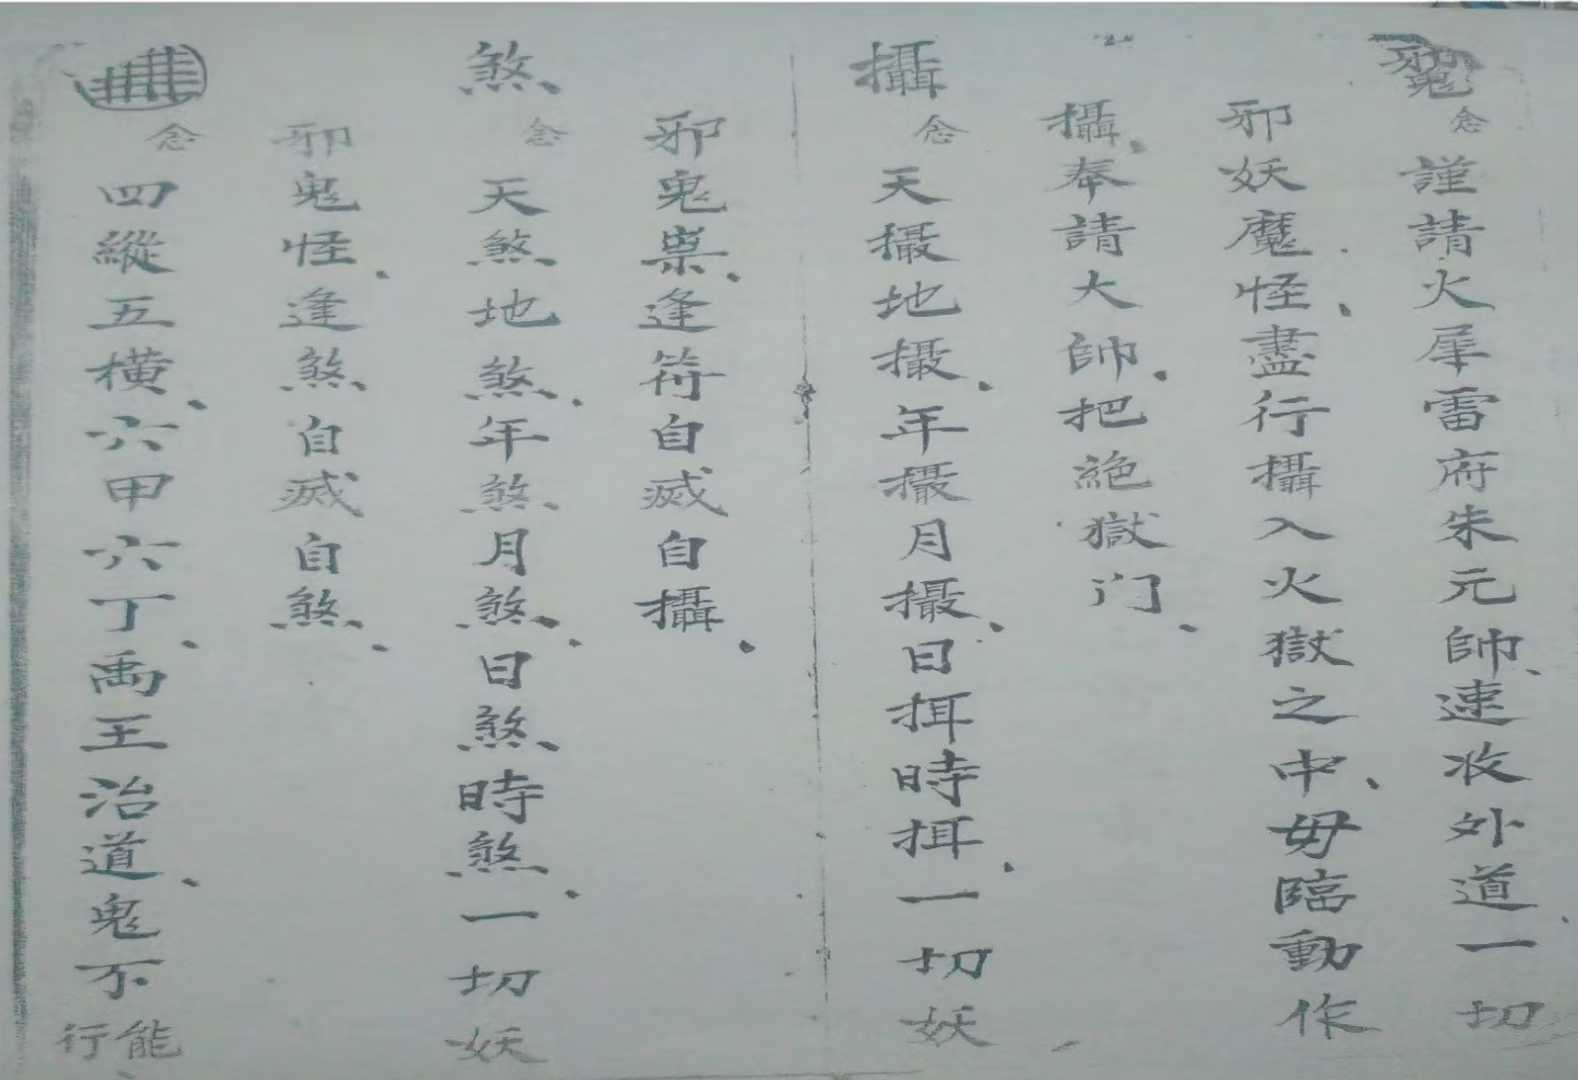 念謹請火犀雷府朱元帥、速收外道一切
邪妖魔怪、盡行攝入火獄之中、毋臨動作
攝、奉請大帥、把絕獄门、
攝念天攝地攝、年攝月攝、日挕時挕、一切妖
邪鬼祟、逢符自滅自攝、
煞念天煞地煞、年煞月煞、日煞時煞、一切妖
邪鬼怪、逢煞自滅自煞、
念四縱五橫、六甲六丁、禹王治道、鬼不能行